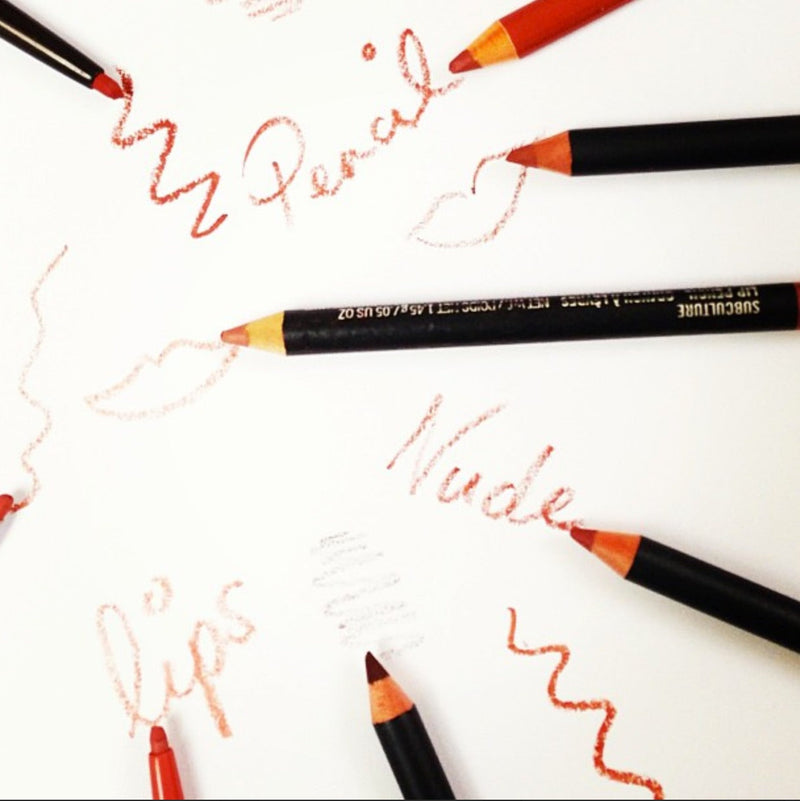 Pencil
SUBCULTURE
LIP PENCIL
CRAYON À LÈVRES NET WT./POIDS NET 1.45 g / .05 US OZ
Nude
lips